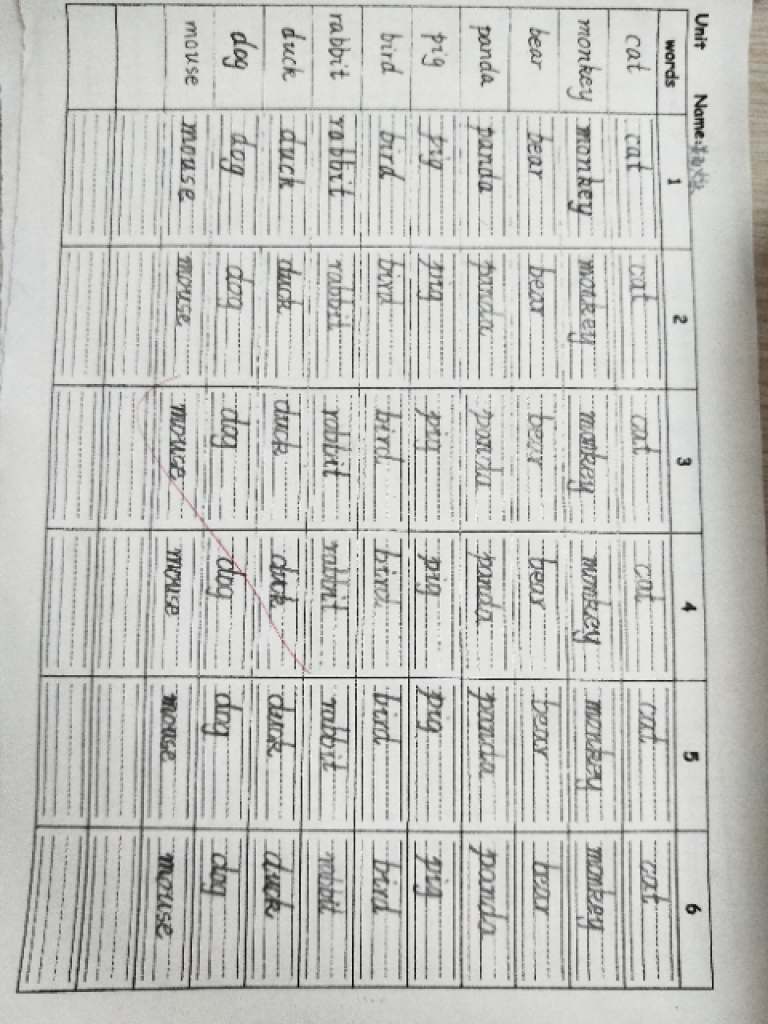 Unit Name:
words 1 2 3 4 5 6
cat cat cat cat cat cat cat
monkey monkey monkey monkey monkey monkey monkey
bear bear bear bear bear bear bear
panda panda panda panda panda panda panda
pig pig pig pig pig pig pig
bird bird bird bird bird bird bird
rabbit rabbit rabbit rabbit rabbit rabbit rabbit
duck duck duck duck duck duck duck
dog dog dog dog dog dog dog
mouse mouse mouse mouse mouse mouse mouse